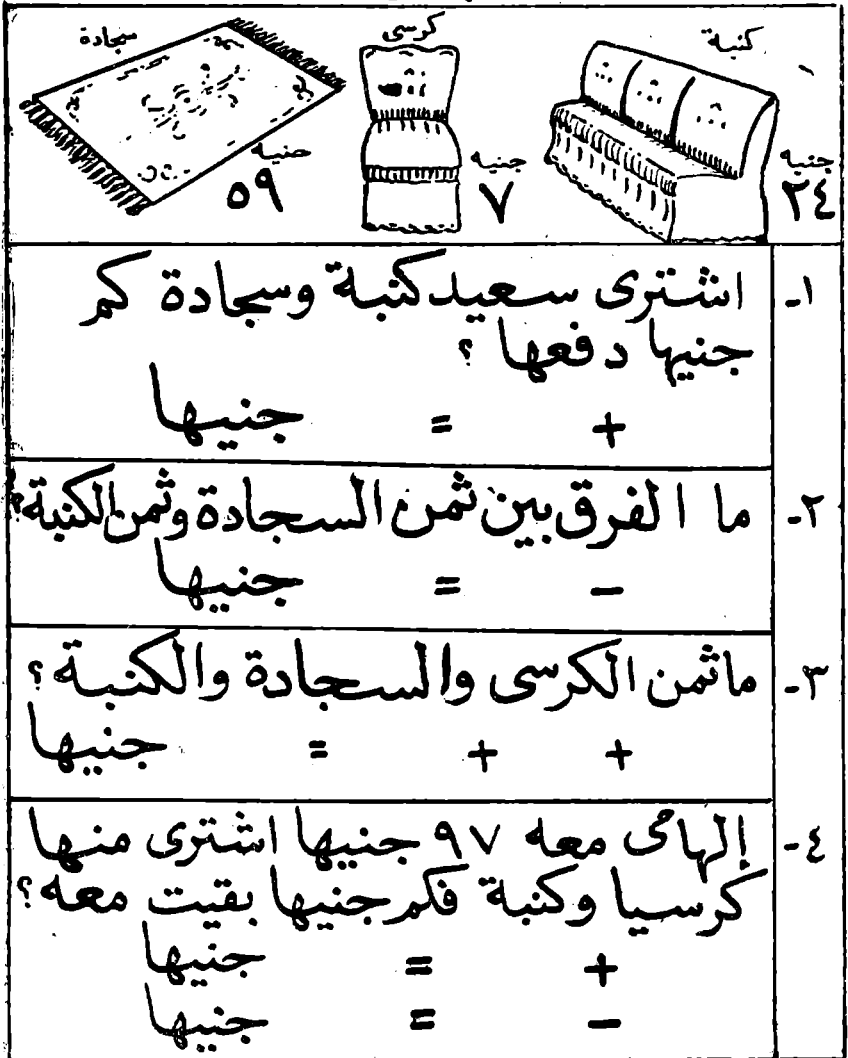 كنبة
جنيه
٢٤
كرسى
جنيه
٧
سجادة
جنيه
٥٩
١- اشترى سعيد كنبة وسجادة كم
جنيها دفعها ؟
+ = جنيها
٢- ما الفرق بين ثمن السجادة وثمن الكنبة؟
- = جنيها
٣- ماثمن الكرسى والسجادة والكنبة ؟
+ + = جنيها
٤- إلهامى معه ٩٧ جنيها اشترى منها
كرسيا وكنبة فكم جنيها بقيت معه ؟
+ = جنيها
- = جنيها